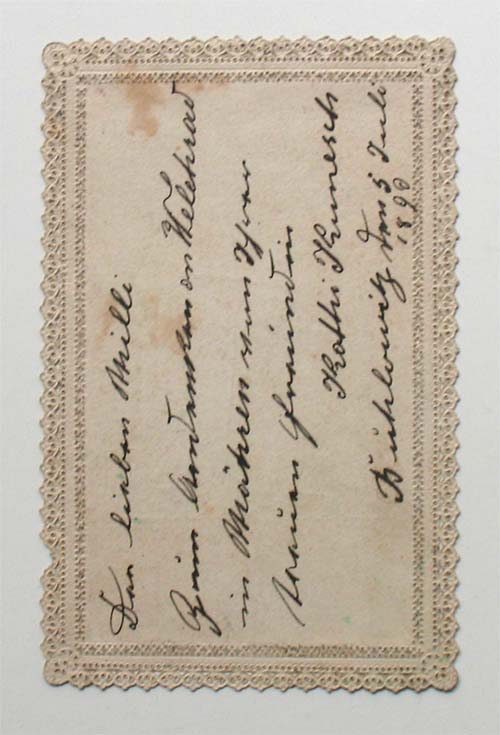 Der lieben Milli
Zum Andenken an Welehrad
in Mähren von Ihrer
treuen Freundin
Kathi Kunesch
Buchlowitz den 5 Juli
1890